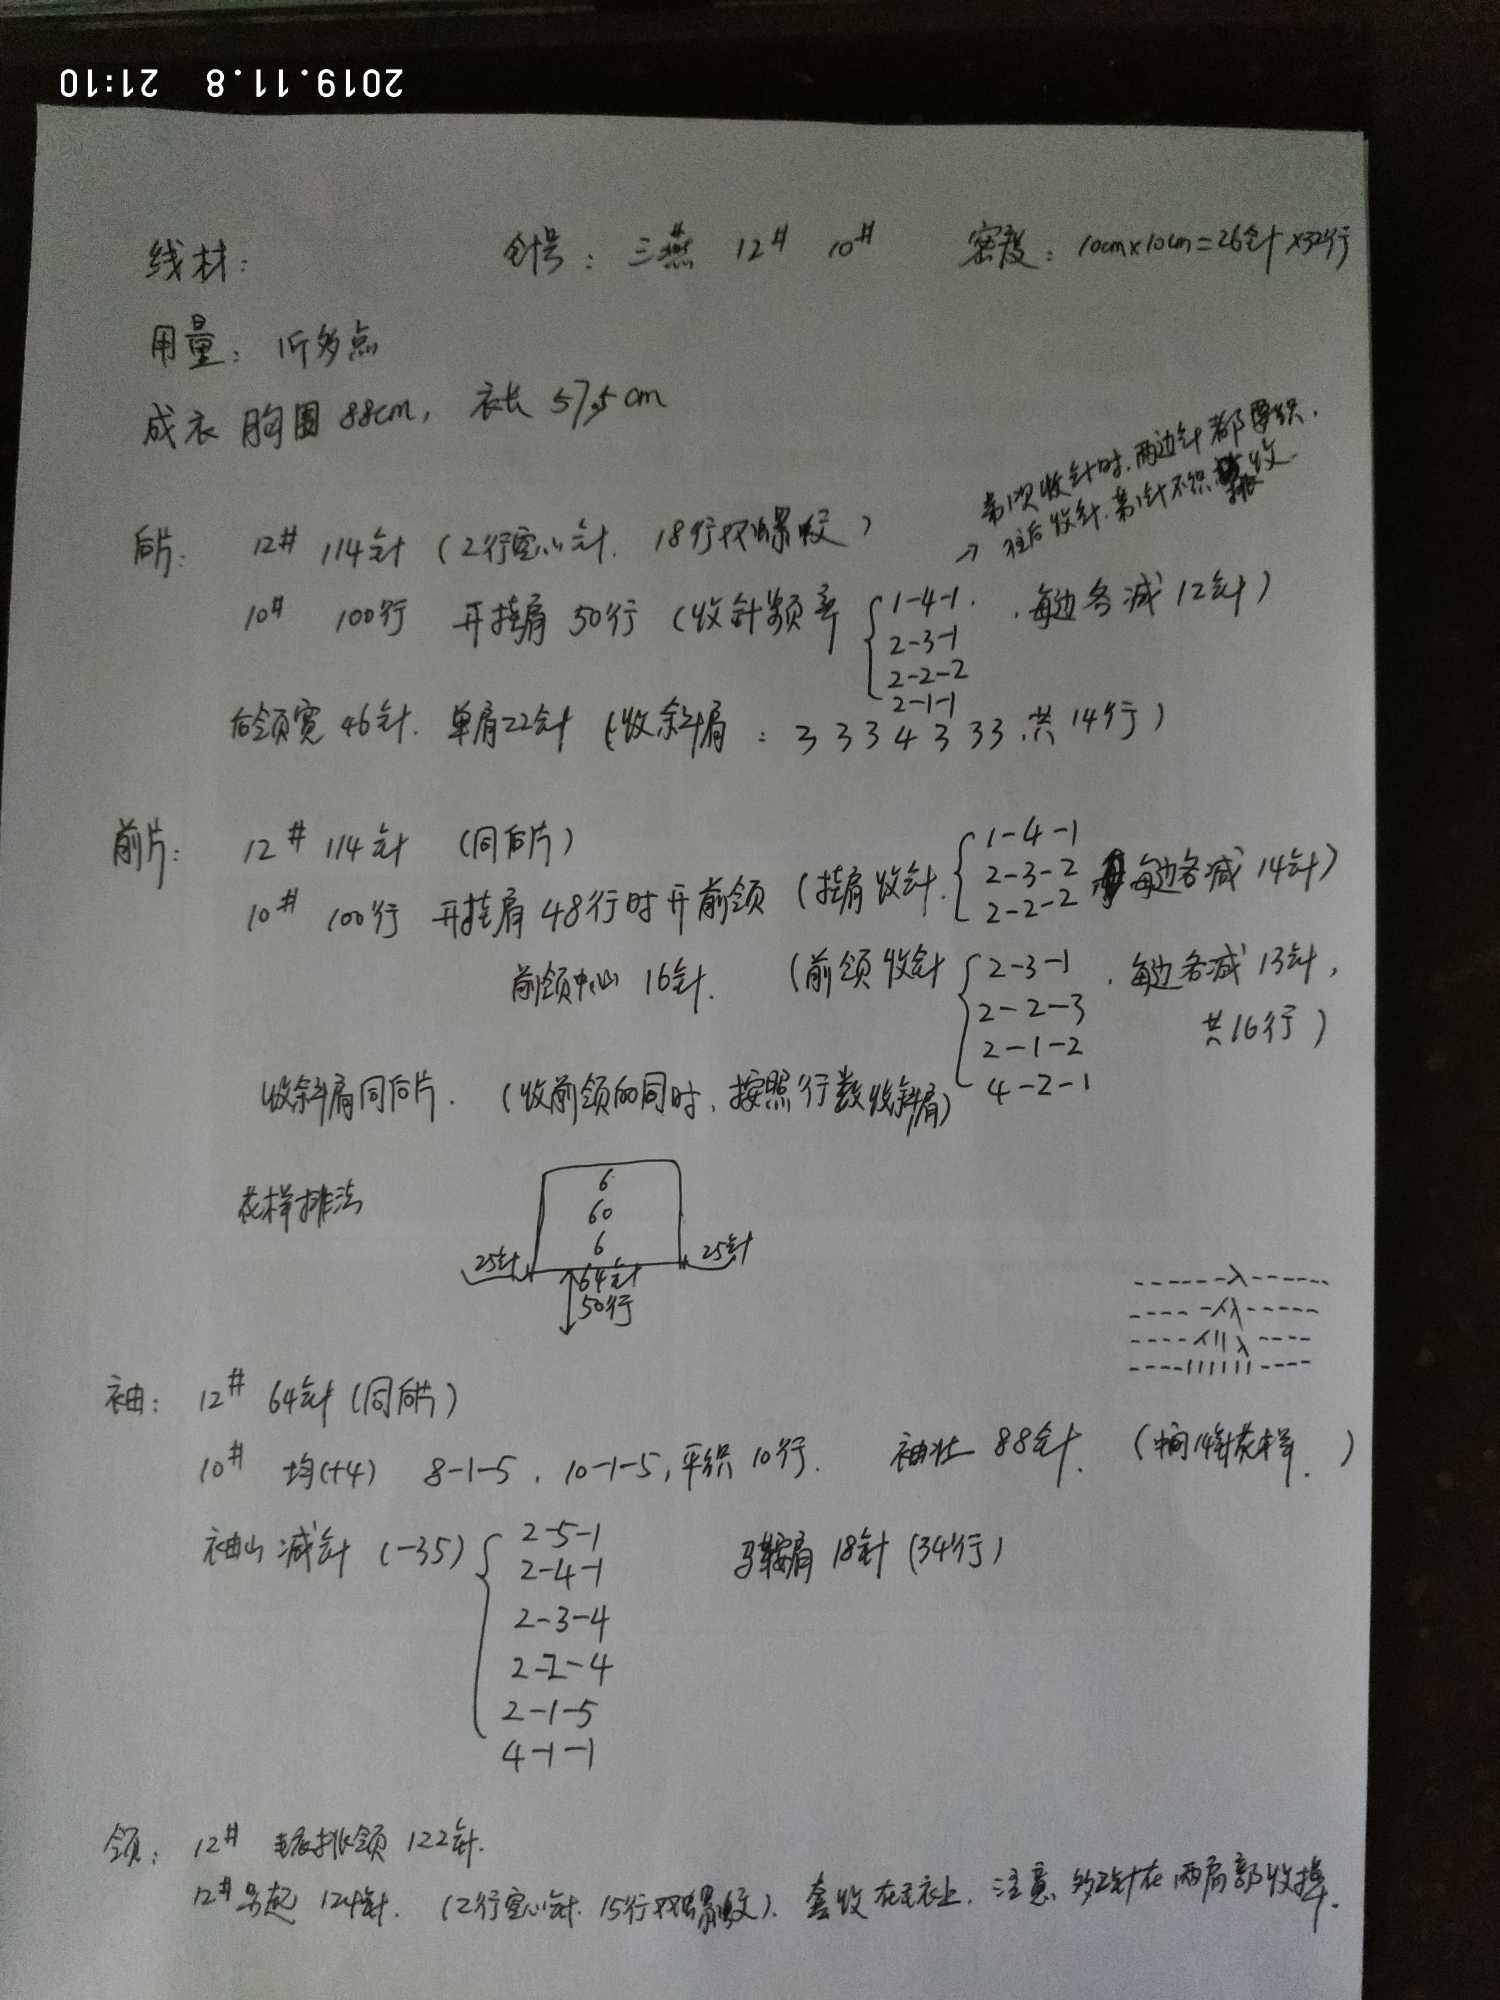 2019.11.8 21:10
线材： 针号：三燕 12# 10# 密度：10cm×10cm=26针×32行
用量：1斤多点
成衣 胸围 88cm，衣长 57.5cm
第1次收针时，两边针都要织．
→ 往后收针．第1针不织 收．
后片： 12# 114针（2行空心针．18行双螺纹）
10# 100行 开挂肩 50行（收针频率 { 1-4-1 ．每边各减 12针）
2-3-1
2-2-2
2-1-1
后领宽 46针．单肩22针（收斜肩：3 3 3 4 3 3 3．共 14行）
前片： 12# 114针 （同后片）
10# 100行 开挂肩 48行时开前领（挂肩收针．{ 1-4-1 每边各减 14针）
2-3-2
2-2-2
前领中心 16针． （前领收针 { 2-3-1 ．每边各减 13针，
2-2-3
2-1-2 共16行）
4-2-1
收斜肩同后片．（收前领的同时，按照行数收斜肩）
花样排法
6
60
6
25针 64针 25针
50行
------λ------
-----人λ-----
----人||λ----
----||||||----
袖： 12# 64针（同后片）
10# 均(+4) 8-1-5．10-1-5，平织 10行． 袖壮 88针．（中间14针花样．）
袖山减针（-35）{ 2-5-1 马鞍肩 18针（34行）
2-4-1
2-3-4
2-2-4
2-1-5
4-1-1
领： 12# 毛衣挑领 122针．
12#另起 124针．（2行空心针．15行双螺纹）．套收在毛衣上．注意 多2针在两肩部收掉．